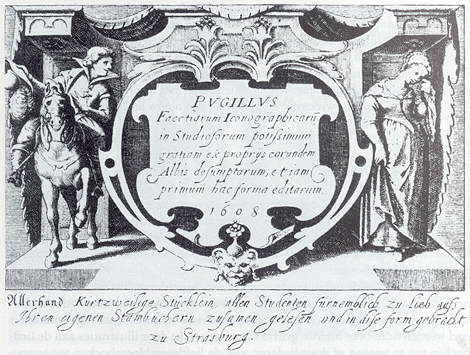 PVGILLVS
Facetiarum Iconographicarū
in Studiosorum potissimum
gratiam ex proprijs eorundem
Albis desumptarum, et iam
primum hac forma editarum
1608
Allerhand Kurtzweilige Stücklein, allen Studenten furnemblich zu lieb auss
Ihren eigenen Stambüchern zusamen gelesen vnd in dise form gebracht
zu Strasburg.